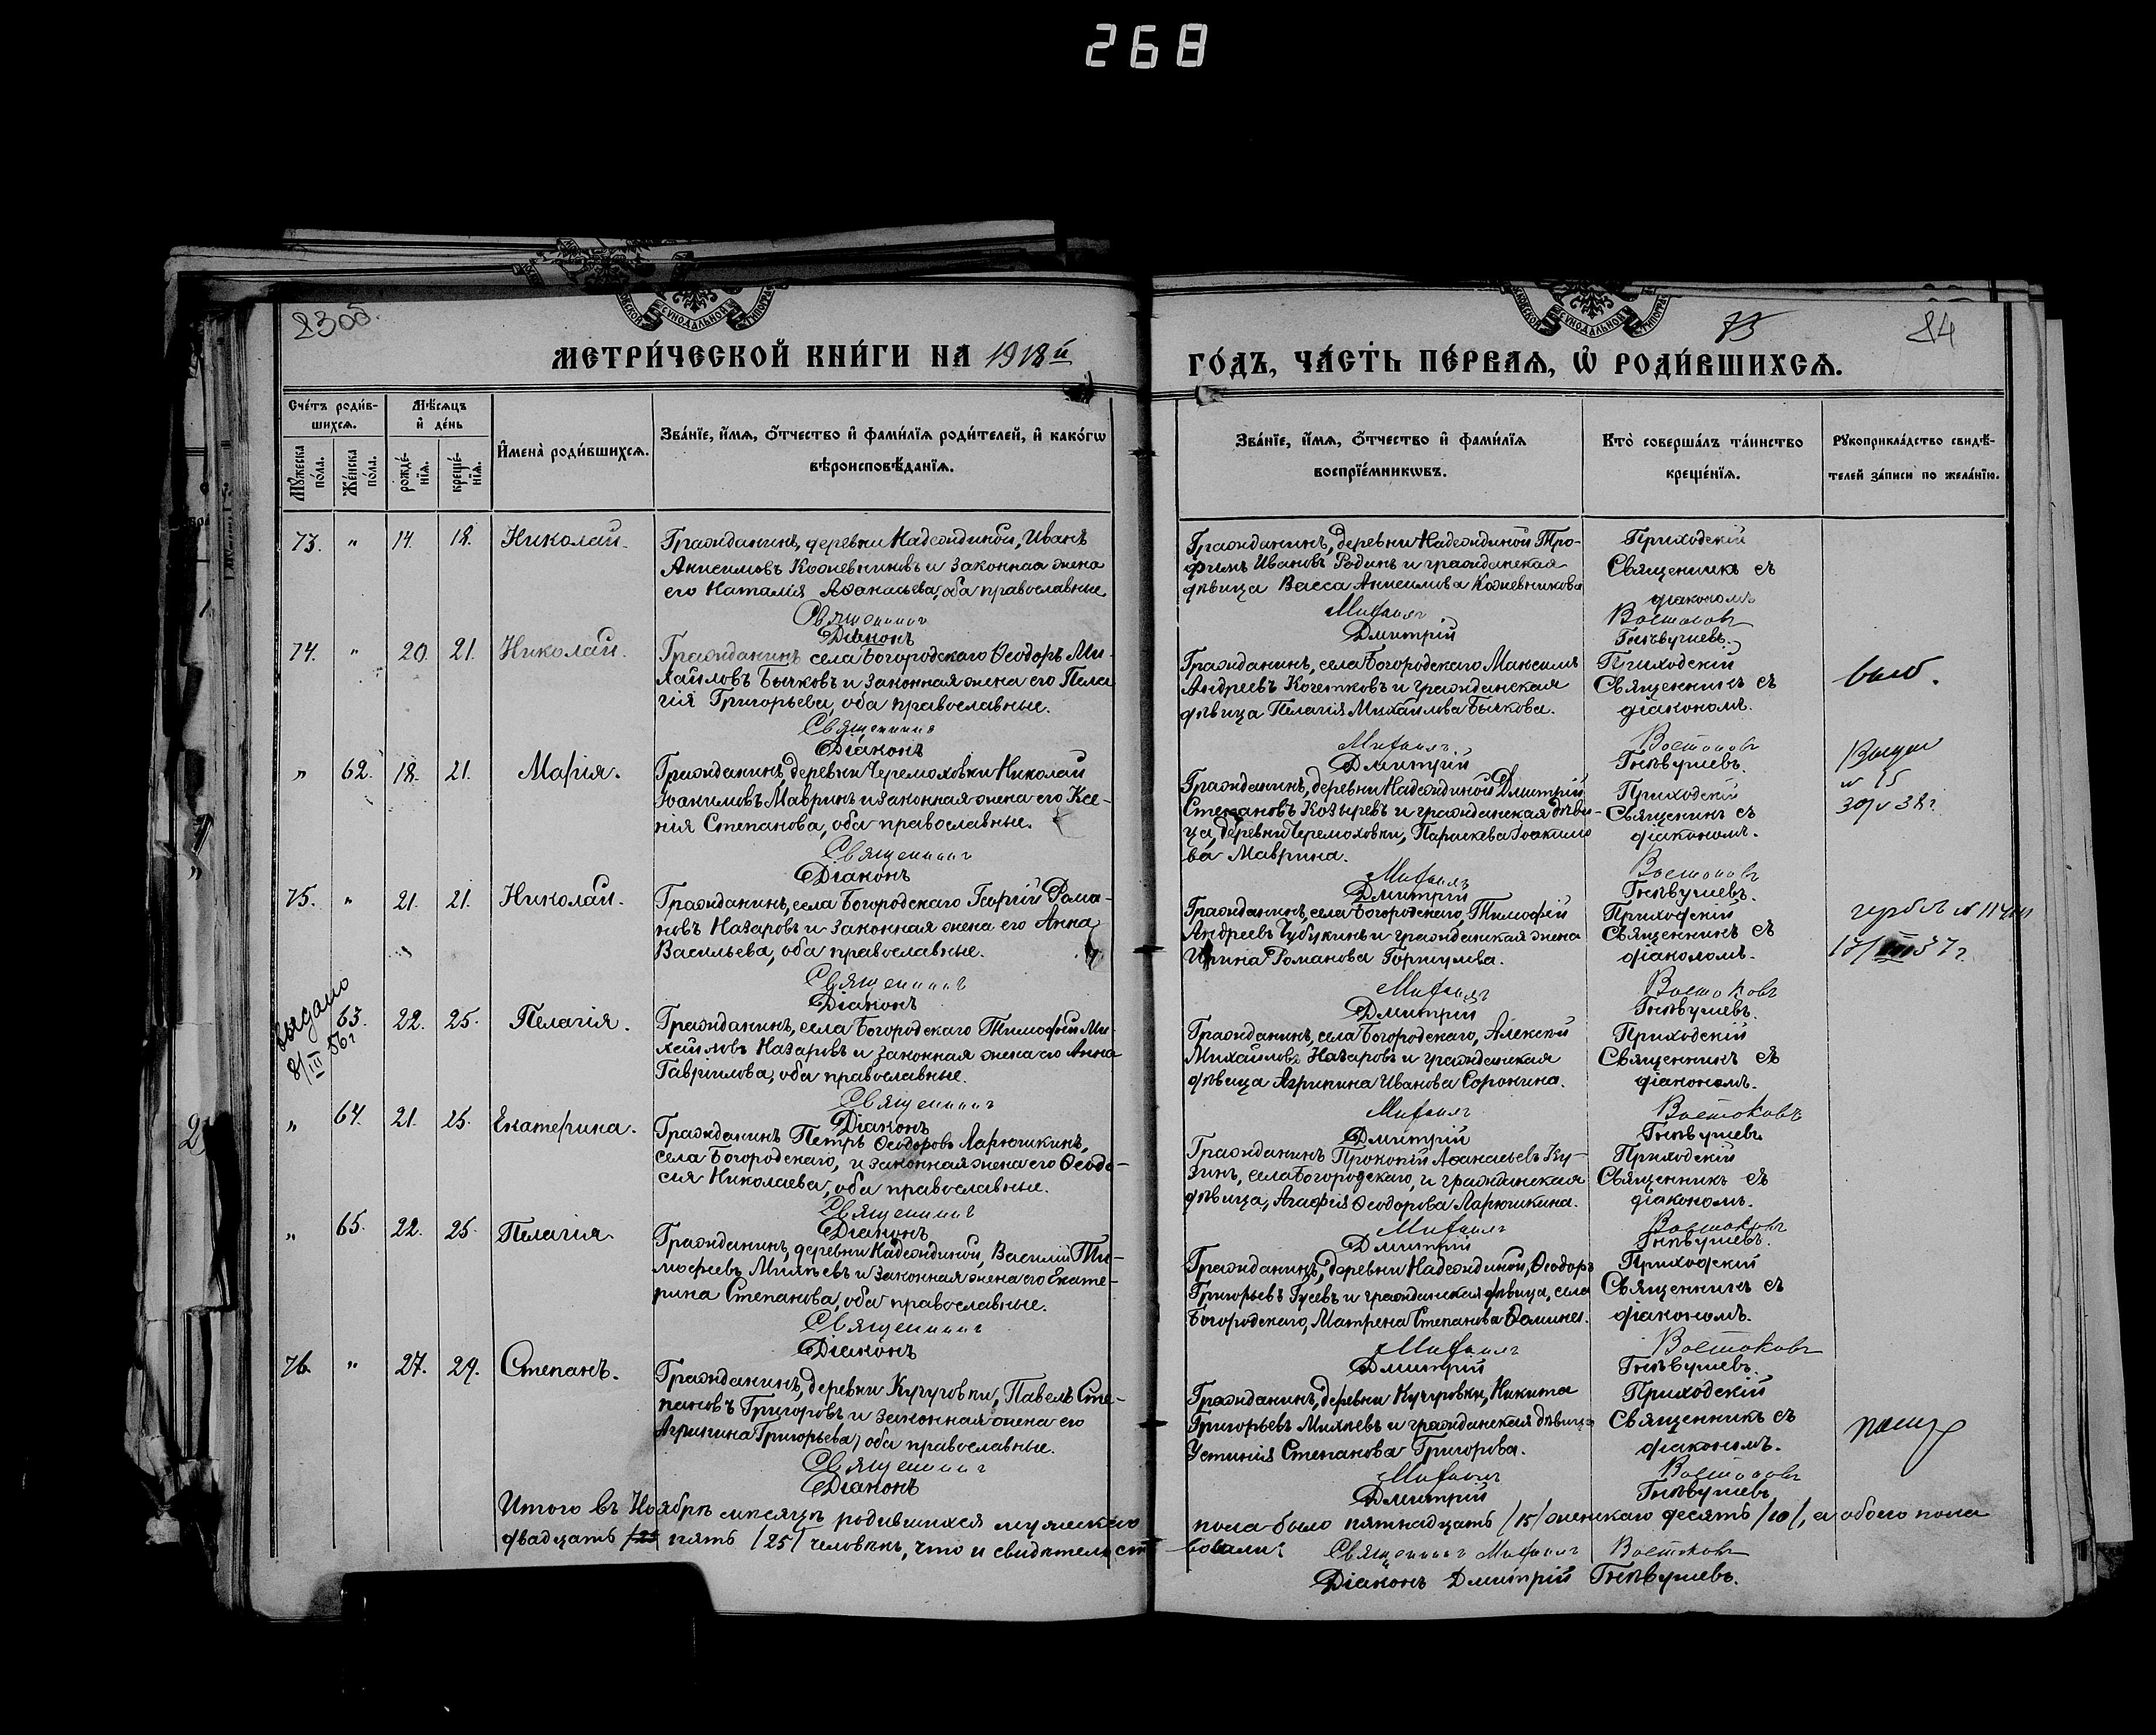 268
230об.
75
84
МЕТРИ́ЧЕСКОЙ КНИ́ГИ НА 1918й
ГО́ДЪ, ЧА́СТЬ ПЕ́РВАѦ, Ѡ РОДИ́ВШИХСѦ.
Сче́тъ роди́в-
шихсѧ.
Мѣ́сѧцъ
и҆ де́нь
Мꙋ́жеска
по́ла.
Же́нска
по́ла.
рожде́-
нїѧ.
креще́-
нїѧ.
И҆мена̀ роди́вшихсѧ.
Зва́нїе, и҆́мѧ, ѻ҆́тчество и҆ фами́лїѧ роди́телей, и҆ како́гѡ
вѣроисповѣ́данїѧ.
Зва́нїе, и҆́мѧ, ѻ҆́тчество и҆ фами́лїѧ
воспрїе́мникѡвъ.
Кто̀ соверша́лъ та́инство
креще́нїѧ.
Рꙋкоприкла́дство свидѣ́-
телей за́писи по жела́нїю.
73. " 14. 18. Николай.
Гражданинъ, деревни Надеждиной, Иванъ
Анисимовъ Кожевниковъ и законная жена
его Наталія Аѳанасьева, оба православные
Гражданинъ, деревни Надеждиной Тро-
фимъ Ивановъ Родинъ и гражданская
дѣвица Васса Анисимова Кожевникова
Приходскій
Священникъ съ
діакономъ
Священникъ Михаилъ Востоковъ
Діаконъ Дмитрій Гнѣвушевъ.
74. " 20. 21. Николай.
Гражданинъ села Богородскаго Ѳеодоръ Ми-
хайловъ Бычковъ и законная жена его Пела
гія Григорьева, оба православные.
Гражданинъ, села Богородскаго Максимъ
Андреевъ Кочетковъ и гражданская
дѣвица Пелагія Михайлова Бычкова.
Приходскій
Священникъ съ
діакономъ.
Священникъ Михаилъ Востоковъ
Діаконъ Дмитрій Гнѣвушевъ.
" 62. 18. 21. Марія.
Гражданинъ, деревни Черемховки Николай
Іоакимовъ Мавринъ и законная жена его Ксе-
нія Степанова, оба православные.
Гражданинъ, деревни Надеждиной Дмитрій
Степановъ Козыревъ и гражданская дѣви-
ца, деревни Черемховки, Параскева Іоакимо
ва Маврина.
Приходскій
Священникъ съ
діакономъ.
Священникъ Михаилъ Востоковъ
Діаконъ Дмитрій Гнѣвушевъ.
75. " 21. 21. Николай.
Гражданинъ, села Богородскаго Георгій Рома-
новъ Назаровъ и законная жена его Анна
Васильева, оба православные.
Гражданинъ, села Богородскаго, Тимофей
Андреевъ Чубукинъ и гражданская жена
Ирина Романова Горшулева.
Приходскій
Священникъ съ
діакономъ.
Священникъ Михаилъ Востоковъ
Діаконъ Дмитрій Гнѣвушевъ.
выдано
8/III 56г
63. 22. 25. Пелагія.
Гражданинъ, села Богородскаго Тимофей Ми-
хайловъ Назаровъ и законная жена его Анна
Гавріилова, оба православные.
Гражданинъ, села Богородскаго, Алексей
Михайловъ Назаровъ и гражданская
дѣвица Агрипина Иванова Сорокина.
Приходскій
Священникъ съ
діакономъ.
Священникъ Михаилъ Востоковъ
Діаконъ Дмитрій Гнѣвушевъ
" 64. 21. 25. Екатерина.
Гражданинъ Петръ Ѳеодоровъ Ларюшкинъ,
села Богородскаго, и законная жена его Ѳеодо-
сія Николаева, оба православные.
Гражданинъ Прокопій Аѳанасьевъ Ку-
зинъ, села Богородскаго, и гражданская
дѣвица, Агафія Ѳеодорова Ларюшкина.
Приходскій
Священникъ съ
діакономъ.
Священникъ Михаилъ Востоковъ
Діаконъ Дмитрій Гнѣвушевъ.
" 65. 22. 25. Пелагія
Гражданинъ, деревни Надеждиной, Василій Ти-
мофеевъ Михѣевъ и законная жена его Екате-
рина Степанова, оба православные.
Гражданинъ, деревни Надеждиной, Ѳеодоръ
Григорьевъ Гусевъ и гражданская дѣвица, села
Богородскаго, Матрена Степанова
Приходскій
Священникъ съ
діакономъ.
Священникъ Михаилъ Востоковъ
Діаконъ Дмитрій Гнѣвушевъ.
76. " 27. 29. Степанъ.
Гражданинъ, деревни Кучуровки, Павелъ Сте-
пановъ Григоровъ и законная жена его
Агрипина Григорьева, оба православные.
Гражданинъ, деревни Кучуровки, Никита
Григорьевъ Михѣевъ и гражданская дѣвица
Устинія Степанова Григорова.
Приходскій
Священникъ съ
діакономъ.
Священникъ Михаилъ Востоковъ
Діаконъ Дмитрій Гнѣвушевъ
Итого въ Ноябрѣ мѣсяцѣ родившихся мужескаго пола было пятнадцать /15/ женскаго десять /10/, а обоего пола
двадцать /25 пять /25/ человѣкъ, что и свидѣтельствовали: Священникъ Михаилъ Востоковъ
Діаконъ Дмитрій Гнѣвушевъ.